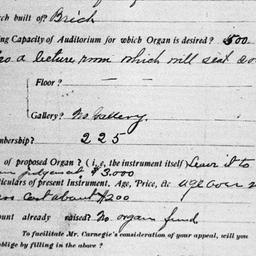 rch built of? Brick
ng Capacity of Auditorium for which Organ is desired? 500
a lecture room which will seat
Floor?
Gallery? No Gallery.
mbership? 225
of proposed Organ? (i.e., the instrument itself) Leave it to
judgment $3.000
ticulars of present Instrument, Age, Price, &c age over
cost about $200
ount already raised? No organ fund
To facilitate Mr. Carnegie's consideration of your appeal, will you
oblige by filling in the above?